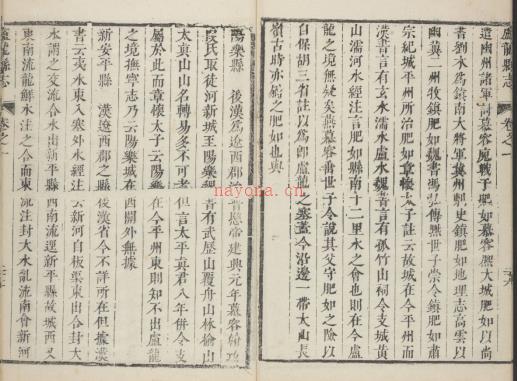 盧龍縣志 卷之一
造幽州諸軍討慕容廆戰于肥如慕容熙大城肥如以尚
書劉木爲鎮南大將軍冀州刺史鎮肥如地理志高雲以
幽冀二州牧鎮肥如魏書馮弘傳世子崇令鎮肥如肅
宗紀城平州所治肥如章懷太子註云故城在今平州而
漢書言有玄水濡水盧水魏書言有孤竹山祠令支城黃
山濡河水經注肥如縣南十二里水之會也則在今盧
龍之境無疑矣燕慕容世子令說其父守肥如之險以
自保胡三省註以爲卽盧龍之塞蓋今沿邊一帶大山長
嶺古時亦號之肥如也與
陽樂縣 後漢爲遼西郡治晉愍帝建興元年慕容翰攻
段氏取徒河新城至陽樂魏書有武歷山覆舟山林榆山
太真山山名轉易多不可考但言太平真君八年併令支
屬於此而章懷太子云陽樂城在今平州東則知不出盧龍
之境撫寧志乃云陽樂城在西關外無據
新安平縣 漢遼西郡 後漢省今不詳所在但據漢
書云夷水東入塞外水經注云新河自枝渠東出合封大
水謂之交流合水出新平縣西南流逕新平縣故城西又
東南流龍鮮水注之合而東流注封大水亂流南會新河
盧龍縣志 卷之一
nayona.cn